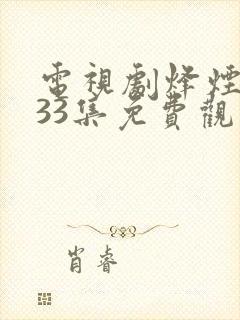 電視劇烽煙
33集免費觀
肖睿